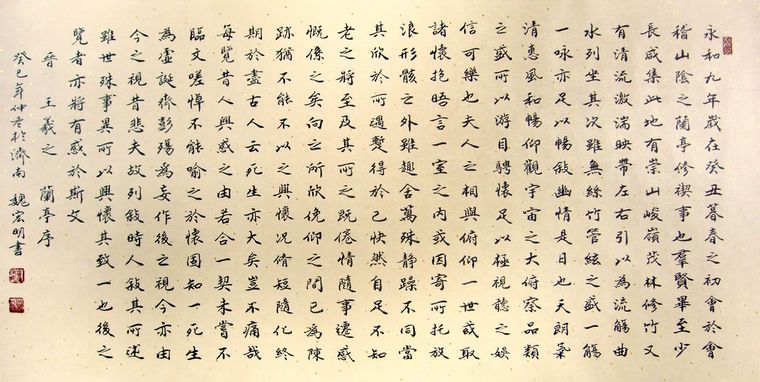 永和九年歲在癸丑暮春之初會於會
稽山陰之蘭亭修禊事也羣賢畢至少
長咸集此地有崇山峻嶺茂林修竹又
有清流激湍映帶左右引以為流觴曲
水列坐其次雖無絲竹管絃之盛一觴
一咏亦足以暢敘幽情是日也天朗氣
清惠風和暢仰觀宇宙之大俯察品類
之盛所以游目騁懷足以極視聽之娛
信可樂也夫人之相與俯仰一世或取
諸懷抱晤言一室之內或因寄所托放
浪形骸之外雖趣舍萬殊静躁不同當
其欣於所遇蹔得於己快然自足不知
老之將至及其所之既倦情隨事遷感
慨係之矣向之所欣俛仰之間已為陳
跡猶不能不以之興懷況脩短隨化終
期於盡古人云死生亦大矣豈不痛哉
每覽昔人興感之由若合一契未嘗不
臨文嗟悼不能喻之於懷固知一死生
為虛誕齊彭殤為妄作後之視今亦由
今之視昔悲夫故列敘時人敘其所述
雖世殊事異所以興懷其致一也後之
覽者亦將有感於斯文
晉 王羲之 蘭亭序
癸巳年仲冬於濟南 魏宏明書